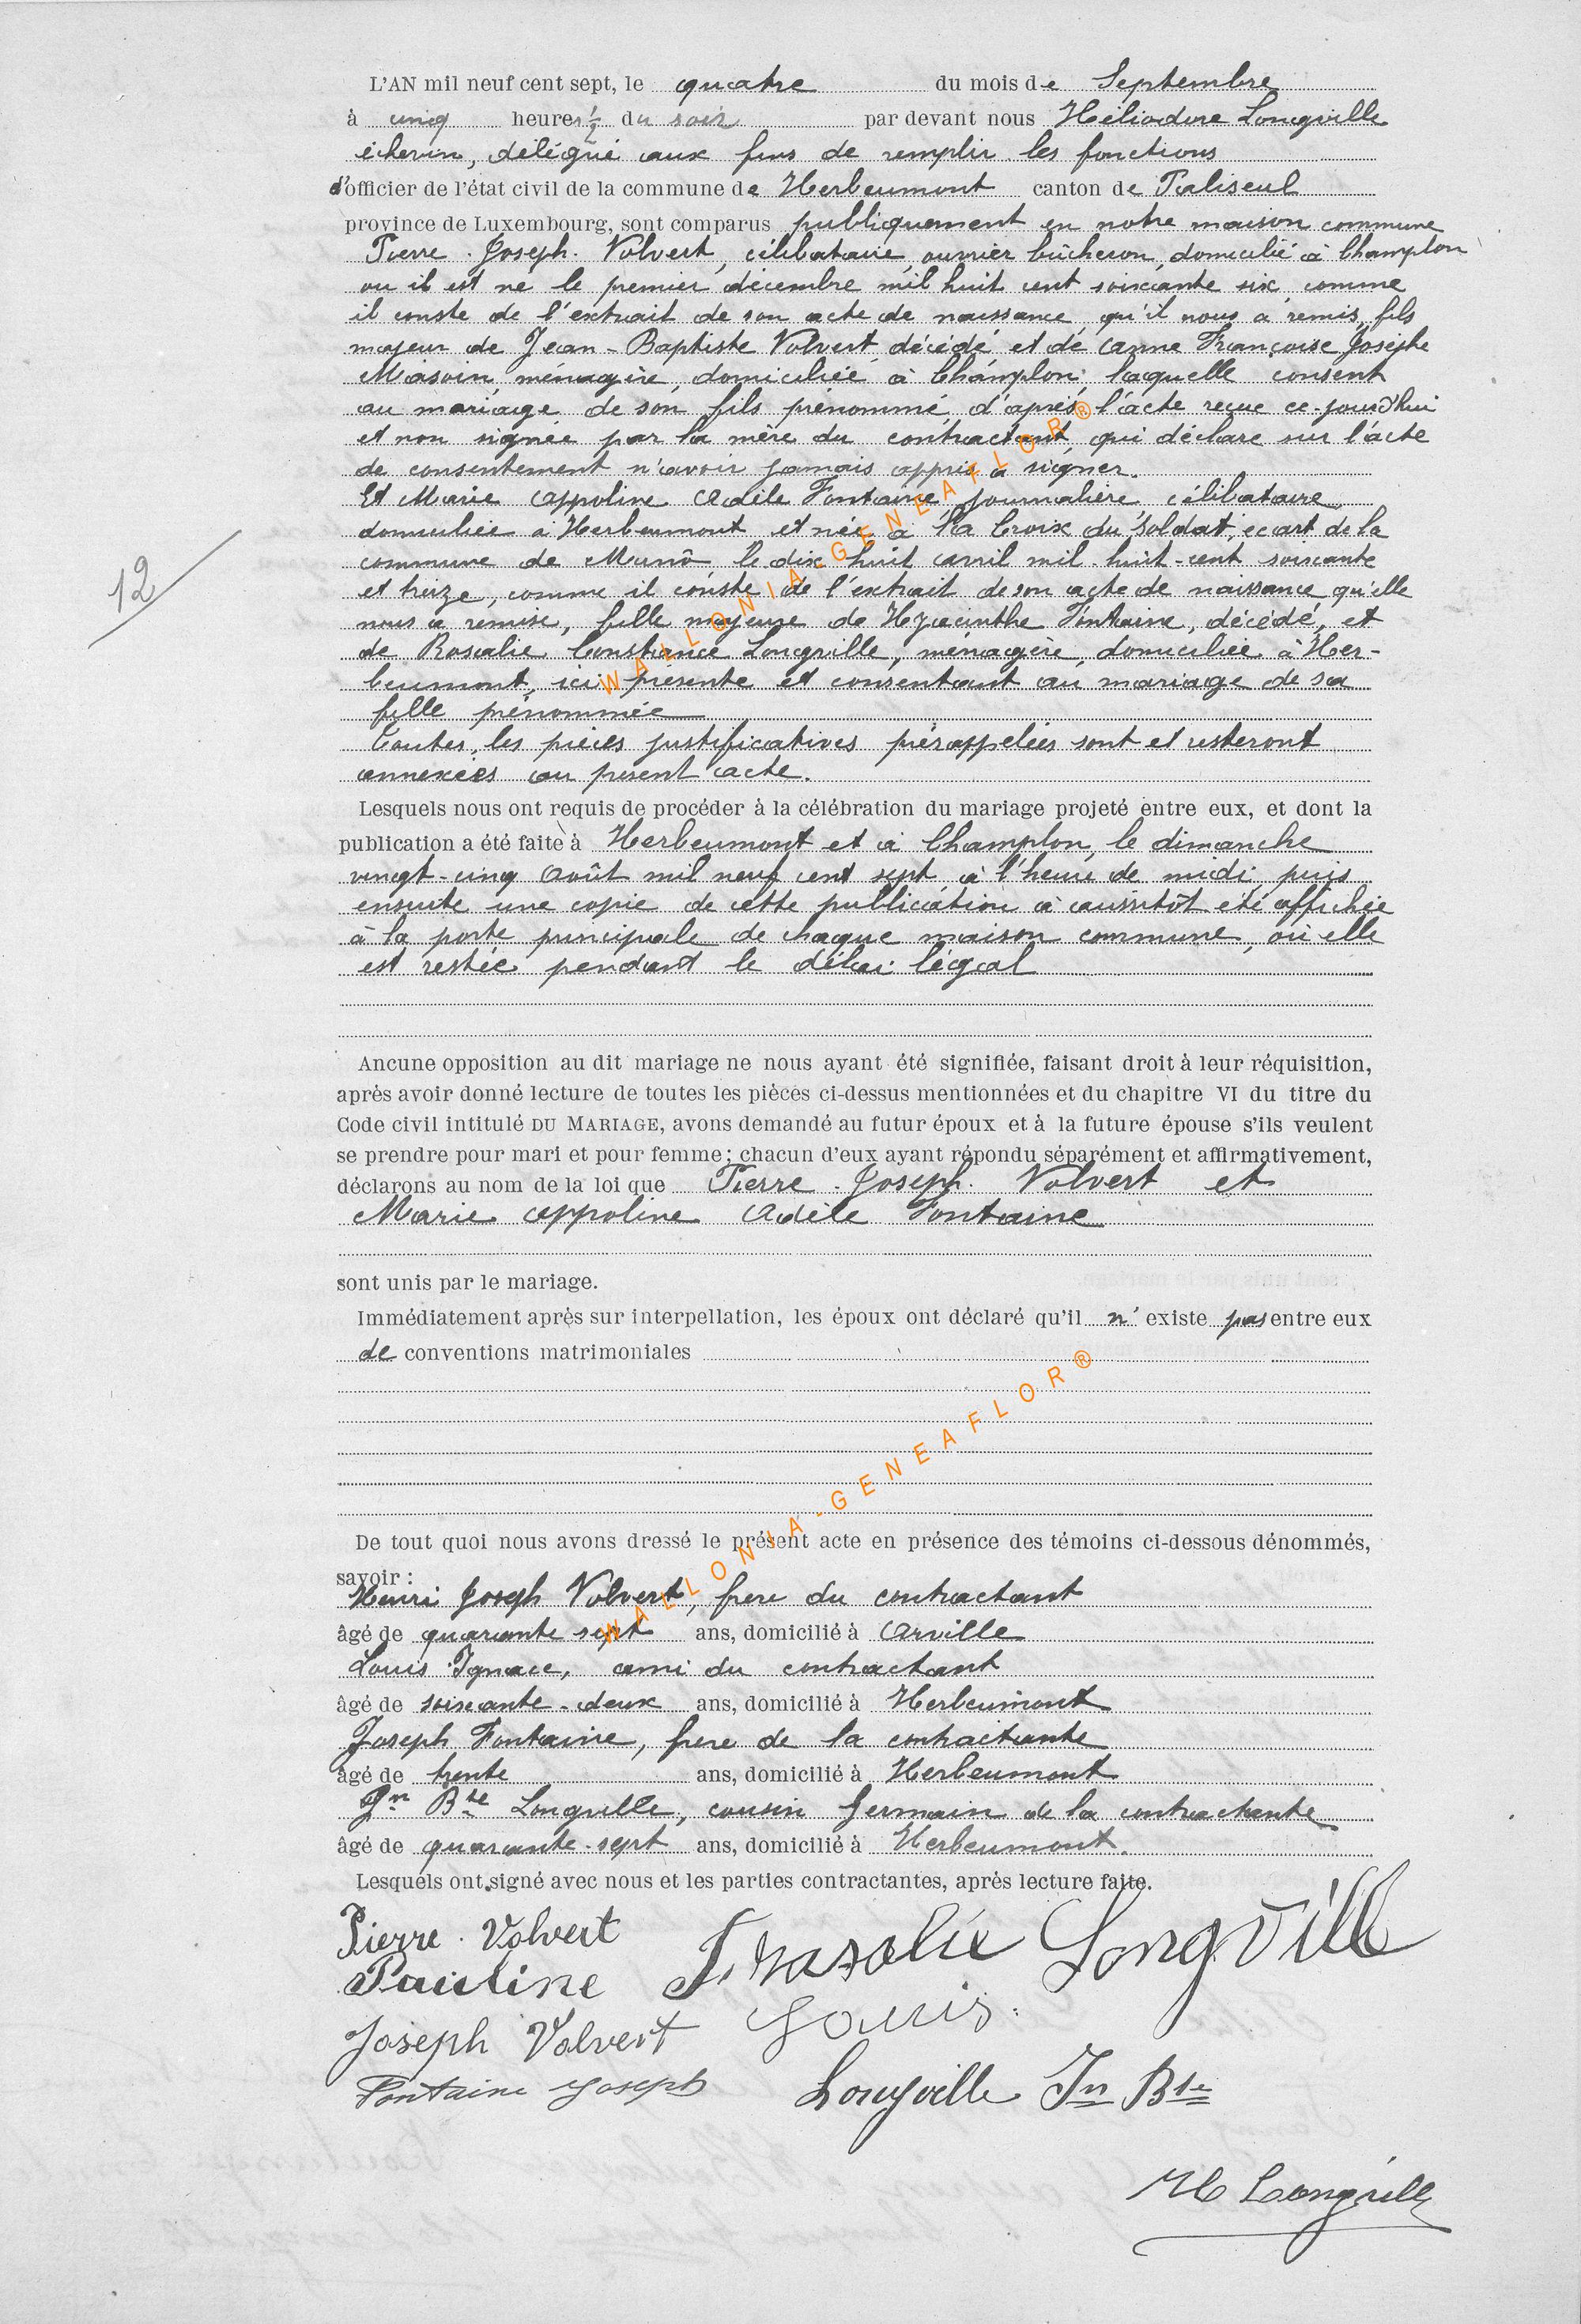 L'AN mil neuf cent sept, le quatre du mois de Septembre
à cinq heures ½ du soir par devant nous Héliodore Longville
échevin, délégué aux fins de remplir les fonctions
d'officier de l'état civil de la commune de Herbeumont canton de Paliseul
province de Luxembourg, sont comparus publiquement en notre maison commune
Pierre-Joseph Volvert, célibataire, ouvrier bûcheron, domicilié à Champlon
ou il est né le premier décembre mil huit cent soixante six, comme
il conste de l'extrait de son acte de naissance qu'il nous a remis, fils
majeur de Jean-Baptiste Volvert, décédé et de Anne Françoise Josèphe
Masoin, ménagère, domiciliée à Champlon, laquelle consent
au mariage de son fils prénommé, d'après l'acte reçue ce-jourd'hui
et non signée par la mère du contractant, qui déclare sur l'acte
de consentement n'avoir jamais appris à signer.
Et Marie Appoline Adèle Fontaine, journalière, célibataire
domiciliée à Herbeumont et née à la Croix du Soldat, écart de la
commune de Muno le dix huit avril mil-huit-cent soixante
et treize, comme il conste de l'extrait de son acte de naissance qu'elle
nous a remise, fille majeure de Hyacinthe Fontaine, décédé, et
de Rosalie Constance Longville, ménagère, domiciliée à Her-
beumont, ici présente et consentant au mariage de sa
fille prénommée
Toutes les pièces justificatives prérappelées sont et resteront
annexées au présent acte.
12
Lesquels nous ont requis de procéder à la célébration du mariage projeté entre eux, et dont la
publication a été faite à Herbeumont et à Champlon, le dimanche
vingt-cinq Août mil neuf cent sept à l'heure de midi puis
ensuite une copie de cette publication a aussitôt été affichée
à la porte principale de chaque maison commune, où elle
est restée pendant le délai légal
Aucune opposition au dit mariage ne nous ayant été signifiée, faisant droit à leur réquisition,
après avoir donné lecture de toutes les pièces ci-dessus mentionnées et du chapitre VI du titre du
Code civil intitulé DU MARIAGE, avons demandé au futur époux et à la future épouse s'ils veulent
se prendre pour mari et pour femme; chacun d'eux ayant répondu séparément et affirmativement,
déclarons au nom de la loi que Pierre-Joseph Volvert et
Marie Appoline Adèle Fontaine
sont unis par le mariage.
Immédiatement après sur interpellation, les époux ont déclaré qu'il n'existe pas entre eux
de conventions matrimoniales
De tout quoi nous avons dressé le présent acte en présence des témoins ci-dessous dénommés,
savoir :
Henri Joseph Volvert, frère du contractant
âgé de quarante sept ans, domicilié à Arville
Louis Ignace, ami du contractant
âgé de soixante-deux ans, domicilié à Herbeumont
Joseph Fontaine, frère de la contractante
âgé de trente ans, domicilié à Herbeumont
Jn Bte Longville, cousin germain de la contractante
âgé de quarante-sept ans, domicilié à Herbeumont.
Lesquels ont signé avec nous et les parties contractantes, après lecture faite.
Pierre Volvert
Pauline F. rasalie Longville
Joseph Volvert Louis
Fontaine Joseph Longville Jn Bte
H Longville
WALLONIA-GENEAFLOR®
WALLONIA-GENEAFLOR®